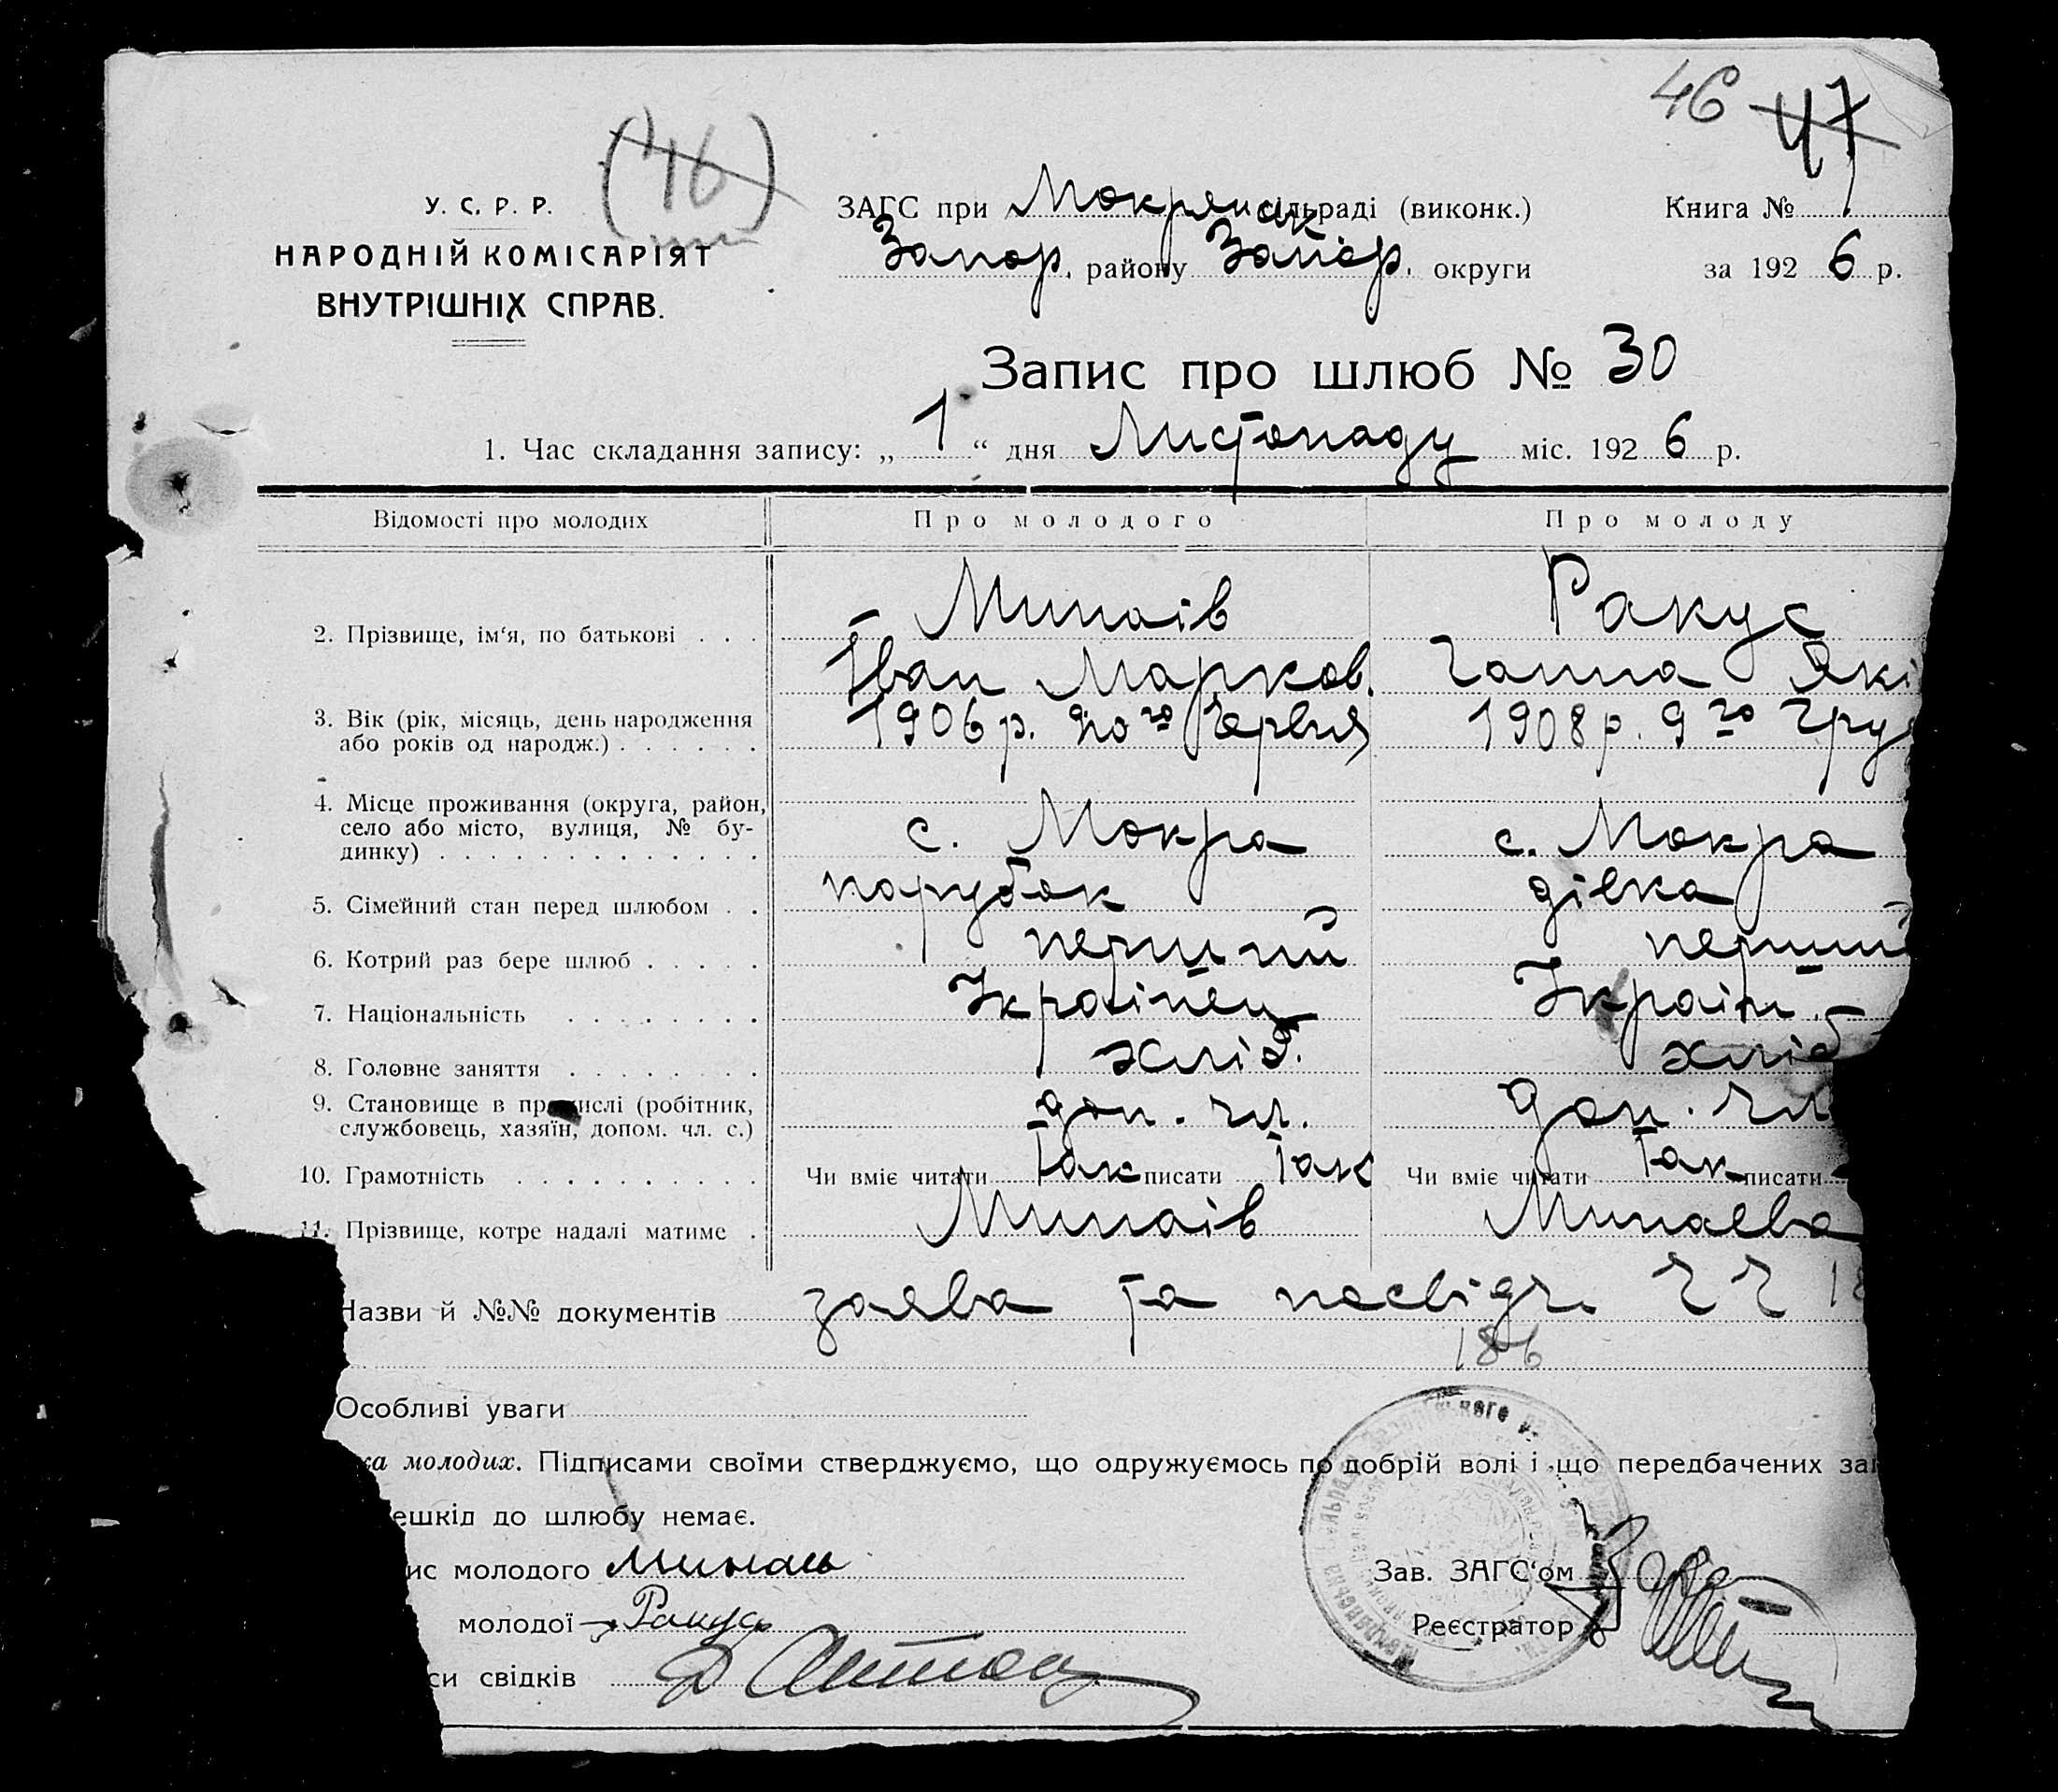 46 47
(46)
У. С. Р. Р.
НАРОДНІЙ КОМІСАРІЯТ
ВНУТРІШНІХ СПРАВ.
ЗАГС при Мокрянск. сільраді (виконк.)
Запор. району Запор. округи
Книга №
за 192 6 р.
Запис про шлюб № 30
1. Час складання запису: „ 1 “ дня Листопаду міс. 192 6 р.
Відомості про молодих Про молодого Про молоду
Минаів Ракус
2. Прізвище, ім‘я, по батькові . . .
Іван Марков. Ганна Які
3. Вік (рік, місяць, день народження 1906 р. 20го Червня 1908 р. 9го Груд
або років од народж.) . . . . . .
4. Місце проживання (округа, район,
село або місто, вулиця, № бу- с. Мокра с. Мокра
динку) . . . . . . . . . . . . .
5. Сімейний стан перед шлюбом . . парубок дівка
6. Котрий раз бере шлюб . . . . . перший перший
7. Національність . . . . . . . . Українец Україн.
8. Головне заняття . . . . . . . . хліб. хліб
9. Становище в промислі (робітник, доп. чл. доп. чл
службовець, хазяїн, допом. чл. с.)
10. Грамотність . . . . . . . . . . Чи вміє читати Так писати Так Чи вміє читати Так писати
11. Прізвище, котре надалі матиме . Минаів Минаева
Назви й №№ документів заява та посвідч. ч ч 18
186
Особливі уваги
ка молодих. Підписами своїми стверджуємо, що одружуємось по добрій волі і що передбачених за
ешкід до шлюбу немає.
ис молодого Минаів
Зав. ЗАГС‘ом
молодої Ракус
Реєстратор
си свідків